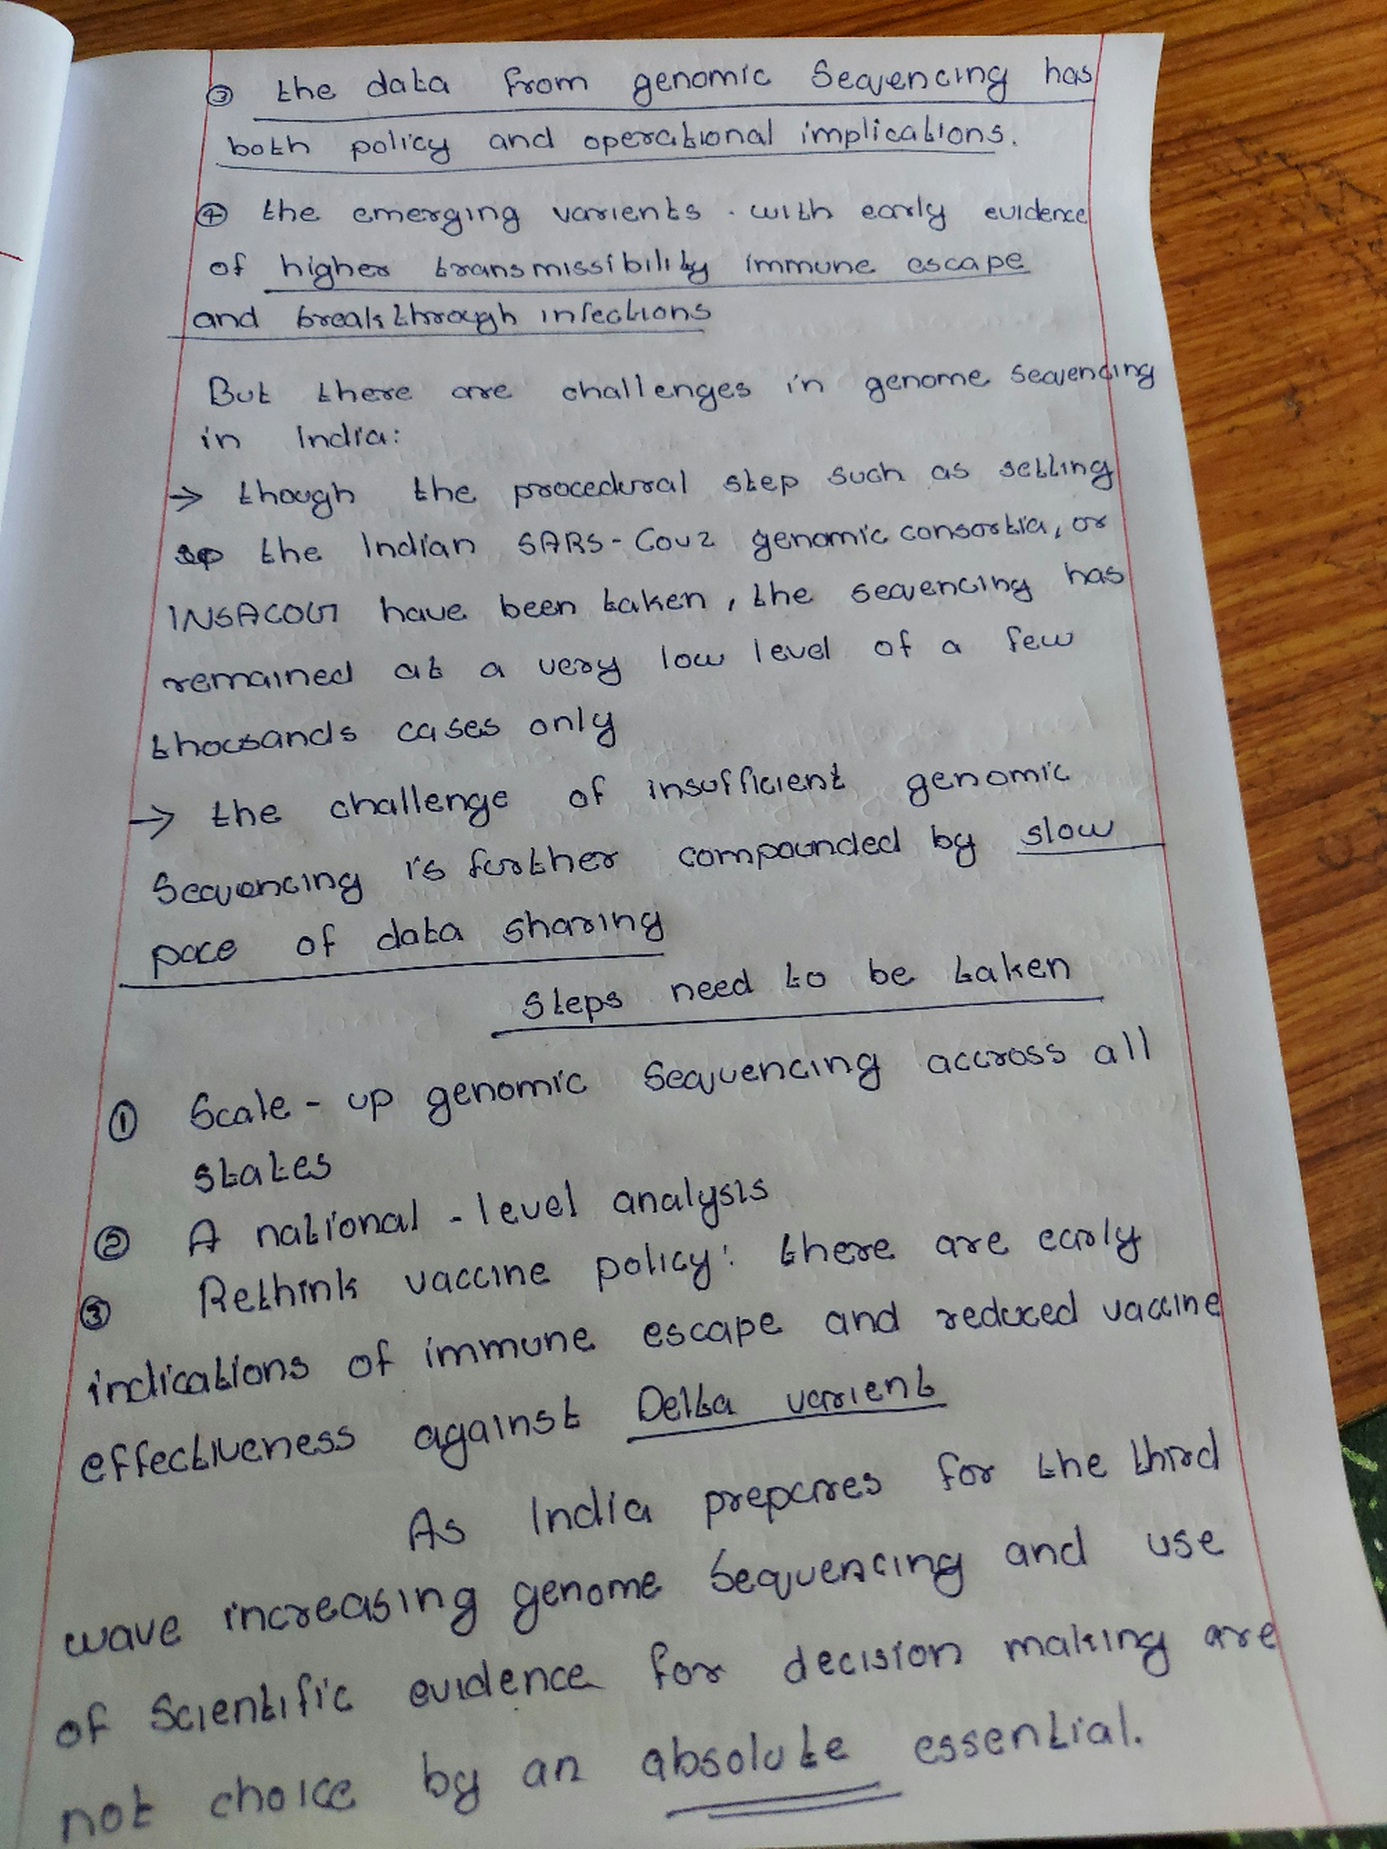 ③ the data from genomic Sequencing has
both policy and operational implications.
④ the emerging varients. with early evidence
of higher transmissibility immune escape
and breakthrough infections
But there are challenges in genome sequencing
in India:
→ though the procedural step such as setting
up the Indian SARS-Cov2 genomic consortia, or
INSACOG have been taken, the sequencing has
remained at a very low level of a few
thousands cases only
→ the challenge of insufficient genomic
Sequencing is further compounded by slow
pace of data sharing
Steps need to be taken
① Scale-up genomic Sequencing accross all
states
② A national-level analysis
③ Rethink vaccine policy: there are early
indications of immune escape and reduced vaccine
effectiveness against Delta varient
As India prepares for the third
wave increasing genome Sequencing and use
of Scientific evidence for decision making are
not choice by an absolute essential.